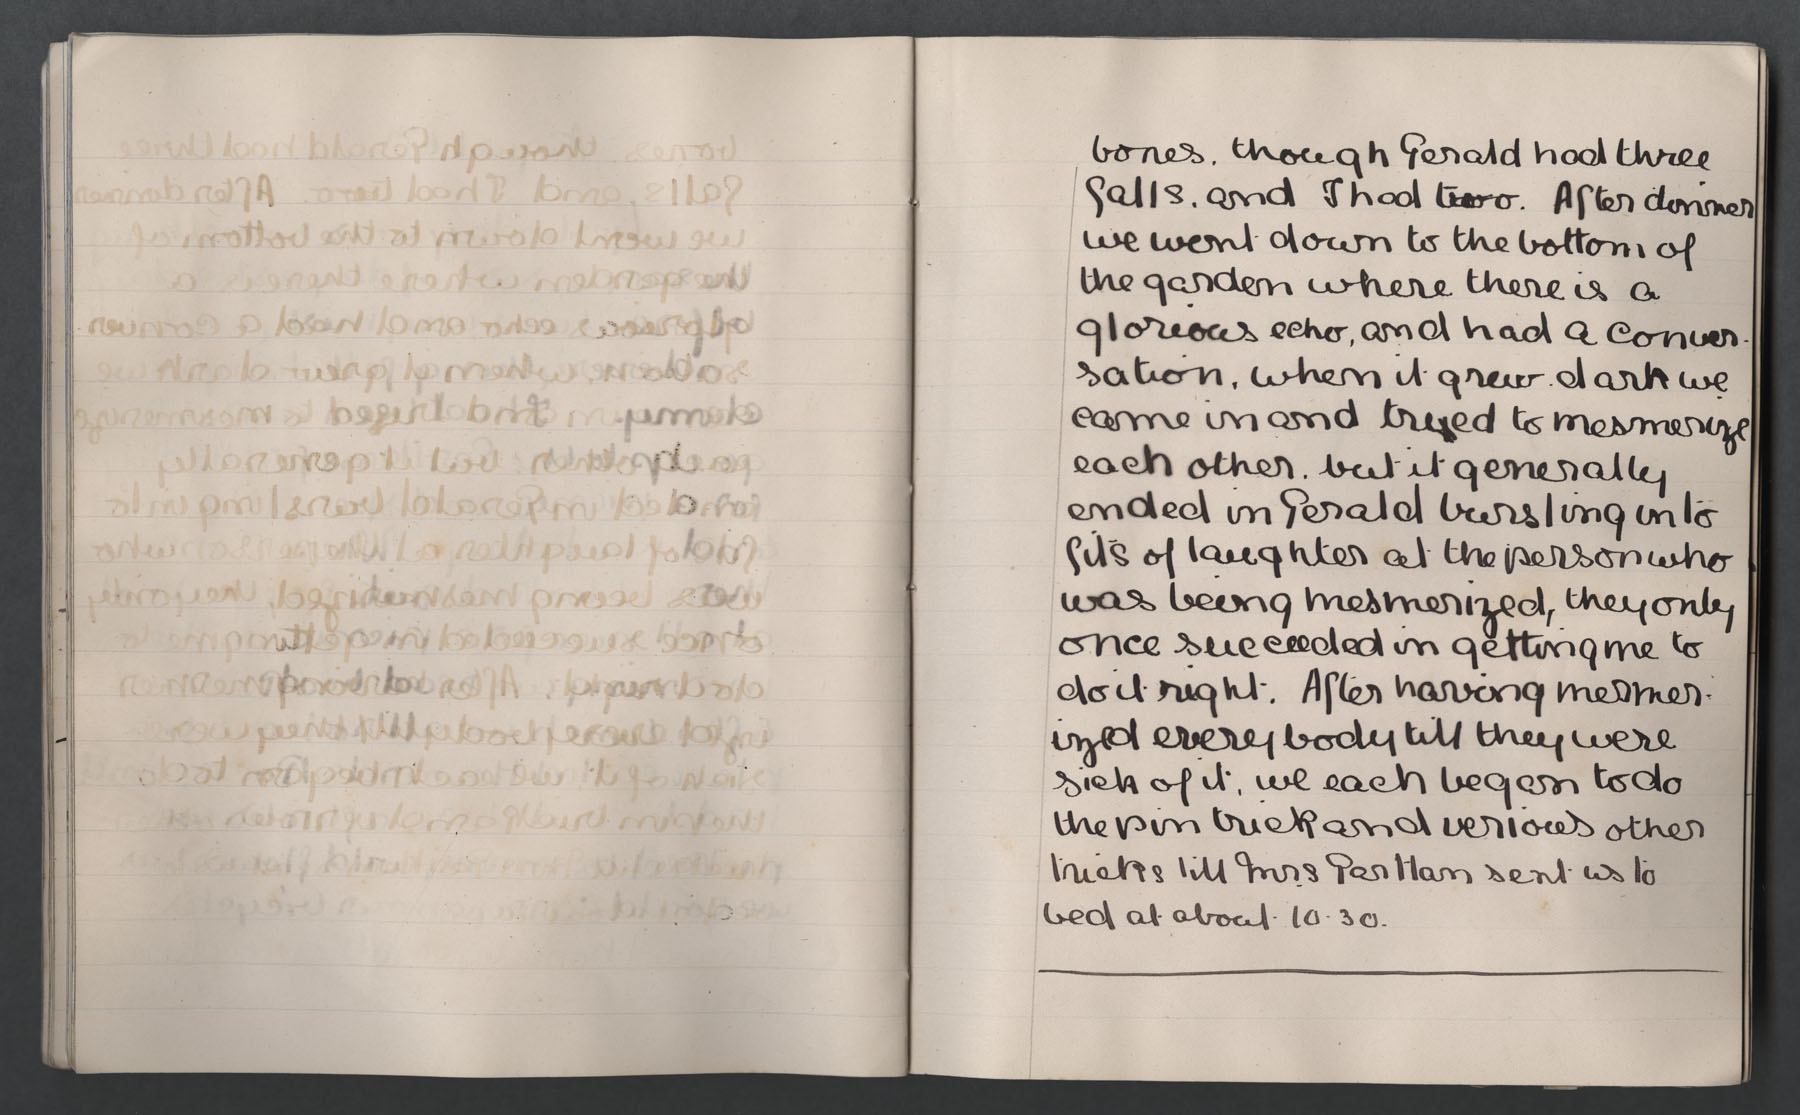 bones, though Gerald had three
falls, and I had two. After dinner
we went down to the bottom of
the garden where there is a
glorious echo, and had a conver-
sation, when it grew dark we
came in and tryed to mesmerize
each other, but it generally
ended in Gerald bursting into
fits of laughter at the person who
was being mesmerized, they only
once succeeded in getting me to
do it right. After having mesmer-
ized every body till they were
sick of it, we each began to do
the pin trick and verious other
tricks till Mrs sent us to
bed at about 10.30.